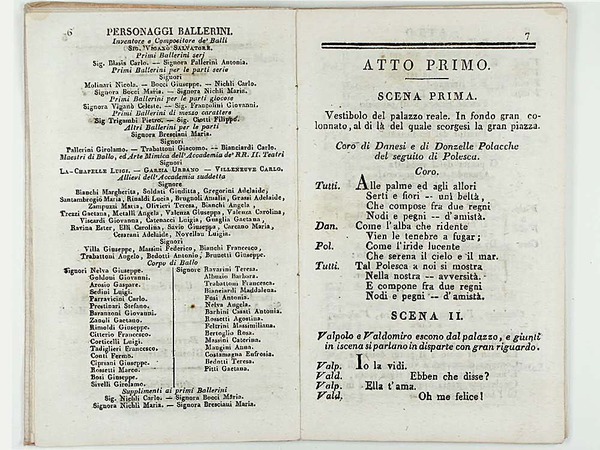 6
PERSONAGGI BALLERINI.
Inventore e Compositore de' Balli
Sig. VIGANÒ SALVATORE.
Primi Ballerini serj
Sig. Blasis Carlo. — Signora Pallerini Antonia.
Primi Ballerini per le parti serie
Signori
Molinari Nicola. — Bocci Giuseppe. — Nichli Carlo.
Signora Bocci Maria. — Signora Nichli Maria.
Primi Ballerini per le parti giocose
Signora Viganò Celeste. — Sig. Franzolini Giovanni.
Primi Ballerini di mezzo carattere
Sig. Trigambi Pietro. — Sig. Ciotti Filippo.
Altri Ballerini per le parti
Signora Bresciani Maria.
Signori
Pallerini Girolamo. — Trabattoni Giacomo. — Bianciardi Carlo.
Maestri di Ballo, ed Arte Mimica dell'Accademia de' RR. II. Teatri
Signori
LA-CHAPELLE LUIGI. — GARZIA URBANO — VILLENEUVE CARLO.
Allievi dell'Accademia suddetta
Signore
Bianchi Margherita, Soldati Giuditta, Gregorini Adelaide,
Santambrogio Maria, Rinaldi Lucia, Brugnoli Amalia, Grassi Adelaide,
Zampuzzi Maria, Olivieri Teresa, Bianchi Angela,
Trezzi Gaetana, Metalli Angela, Valenza Giuseppa, Valenza Carolina,
Viscardi Giovanna, Catenacci Luigia, Guaglia Gaetana,
Ravina Ester, Elli Carolina, Savio Giuseppa, Carcano Maria,
Cesarani Adelaide, Novellau Luigia.
Signori
Villa Giuseppe, Massini Federico, Bianchi Francesco,
Trabattoni Angelo, Bedotti Antonio, Brunetti Giuseppe.
Corpo di Ballo
Signori Nelva Giuseppe.
Goldoni Giovanni.
Arosio Gaspare.
Sedini Luigi.
Parravicini Carlo.
Prestinari Stefano.
Baranzoni Giovanni.
Zanoli Gaetano.
Rimoldi Giuseppe.
Citterio Francesco.
Corticelli Luigi.
Tadiglieri Francesco.
Conti Fermo.
Cipriani Giuseppe.
Rossetti Marco.
Bosi Giuseppe.
Sivelli Girolamo.
Signore Ravarini Teresa.
Albuzio Barbara.
Trabattoni Francesca.
Bianciardi Maddalena.
Fusi Antonia.
Nelva Angela.
Barbini Casati Antonia.
Rossetti Agostina.
Feltrini Massimiliana.
Bertoglio Rosa.
Massini Caterina.
Mangini Anna.
Costamagna Eufrosia.
Bedotti Teresa.
Pitti Gaetana.
Supplimenti ai primi Ballerini
Sig. Nichli Carlo. — Signora Bocci Maria.
Signora Nichli Maria. — Signora Bresciani Maria.
7
ATTO PRIMO.
SCENA PRIMA.
Vestibolo del palazzo reale. In fondo gran co-
lonnato, al di là del quale scorgesi la gran piazza.
Coro di Danesi e di Donzelle Polacche
del seguito di Polesca.
Coro.
Tutti. Alle palme ed agli allori
Serti e fiori -- uni beltà,
Che compose fra due regni
Nodi e pegni -- d'amistà.
Dan. Come l'alba che ridente
Vien le tenebre a fugar;
Pol. Come l'iride lucente
Che serena il cielo e il mar.
Tutti. Tal Polesca a noi si mostra
Nella nostra -- avversità.
E compone fra due regni
Nodi e pegni -- d'amistà.
SCENA II.
Valpolo e Valdomiro escono dal palazzo, e giunti
in iscena si parlano in disparte con gran riguardo.
Valp. Io la vidi.
Vald. Ebben che disse?
Valp. Ella t'ama.
Vald. Oh me felice!